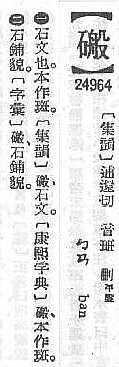 24964
〔集韻〕逋還切 音班 刪平聲
ㄅㄢ ban
㊀石文也。本作斑。〔集韻〕、石文。〔康熙字典〕、本作斑。
㊁石鋪貌。〔字彙〕、石鋪貌。